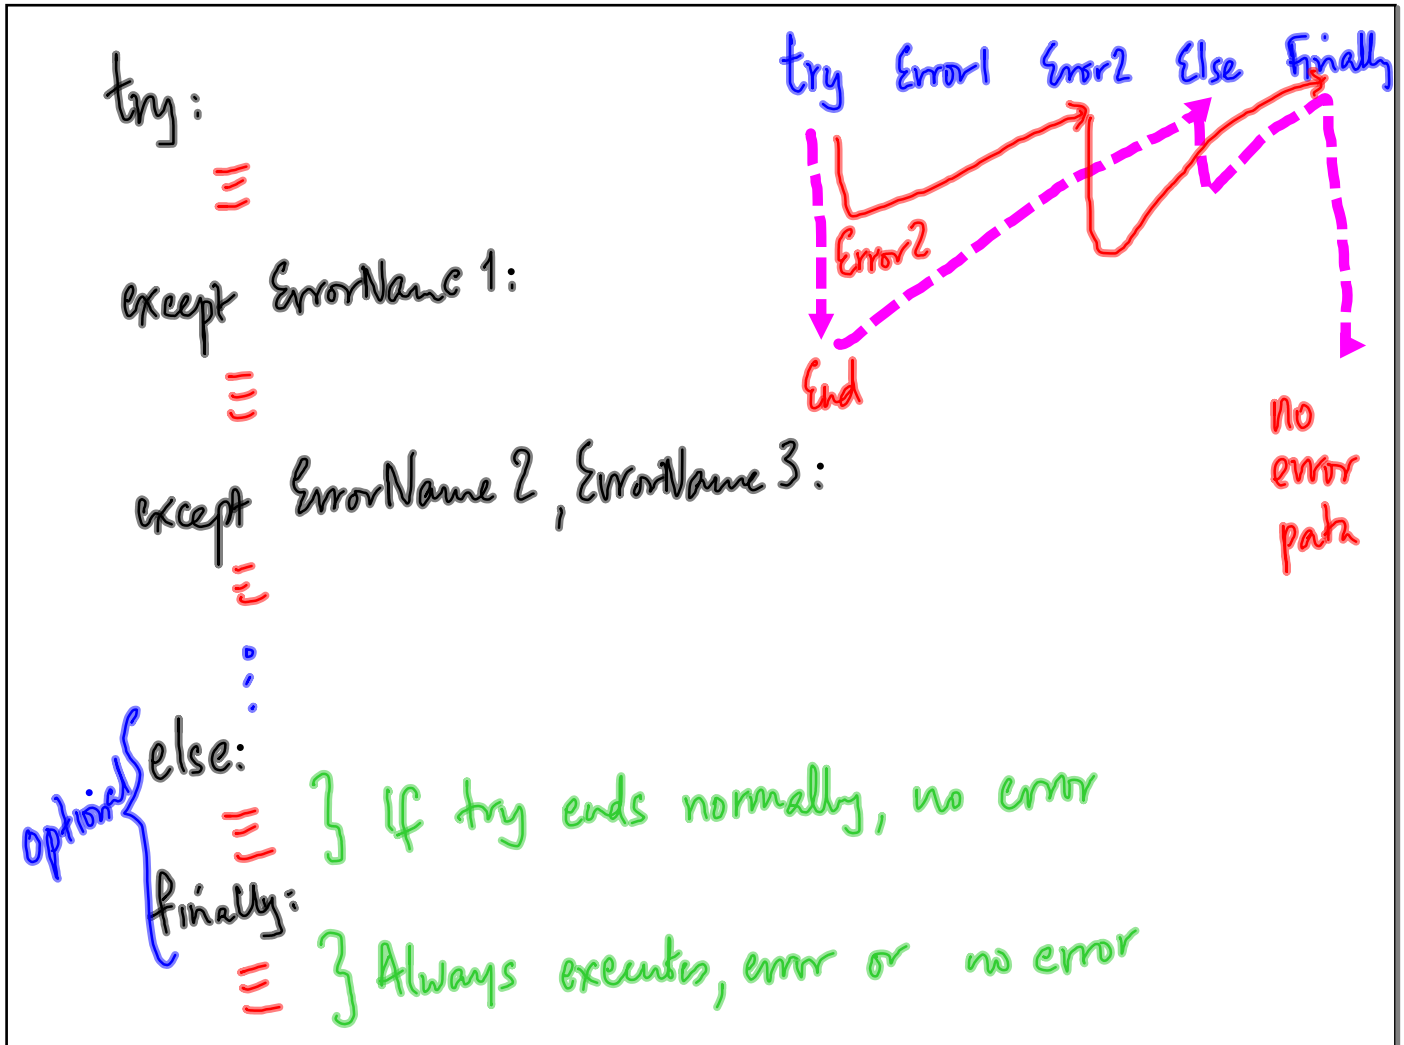 try:
except ErrorName 1:
except ErrorName 2, ErrorName 3:
optional
else:
} If try ends normally, no error
finally:
} Always executes, error or no error
try Error1 Error2 Else Finally
Error2
End
no
error
path